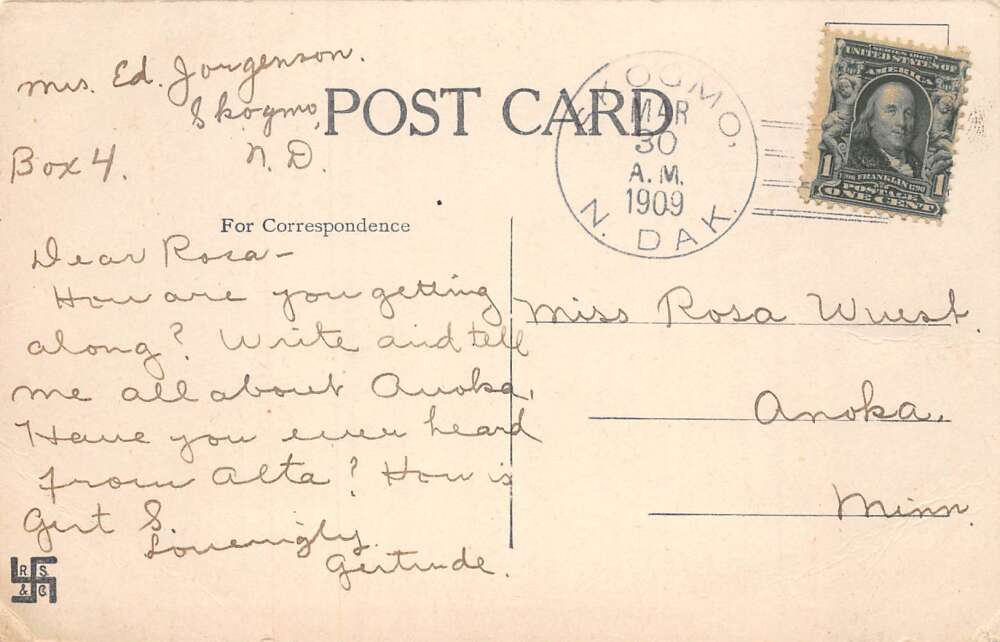 Mrs. Ed. Jorgenson.
Skogmo,
Box 4. N. D.
POST CARD
SKOGMO,
MAR
30
A. M.
1909
N. DAK.
SERIES 1902
UNITED STATES OF
AMERICA
1706 FRANKLIN 1790
1 POSTAGE 1
ONE CENT
For Correspondence
Dear Rosa—
How are you getting
along? Write and tell
me all about Anoka.
Have you ever heard
from Alta? How is
Gert S.
Lovenigly
Gertrude.
Miss Rosa Wuest.
Anoka.
Minn.
R. S.
& C